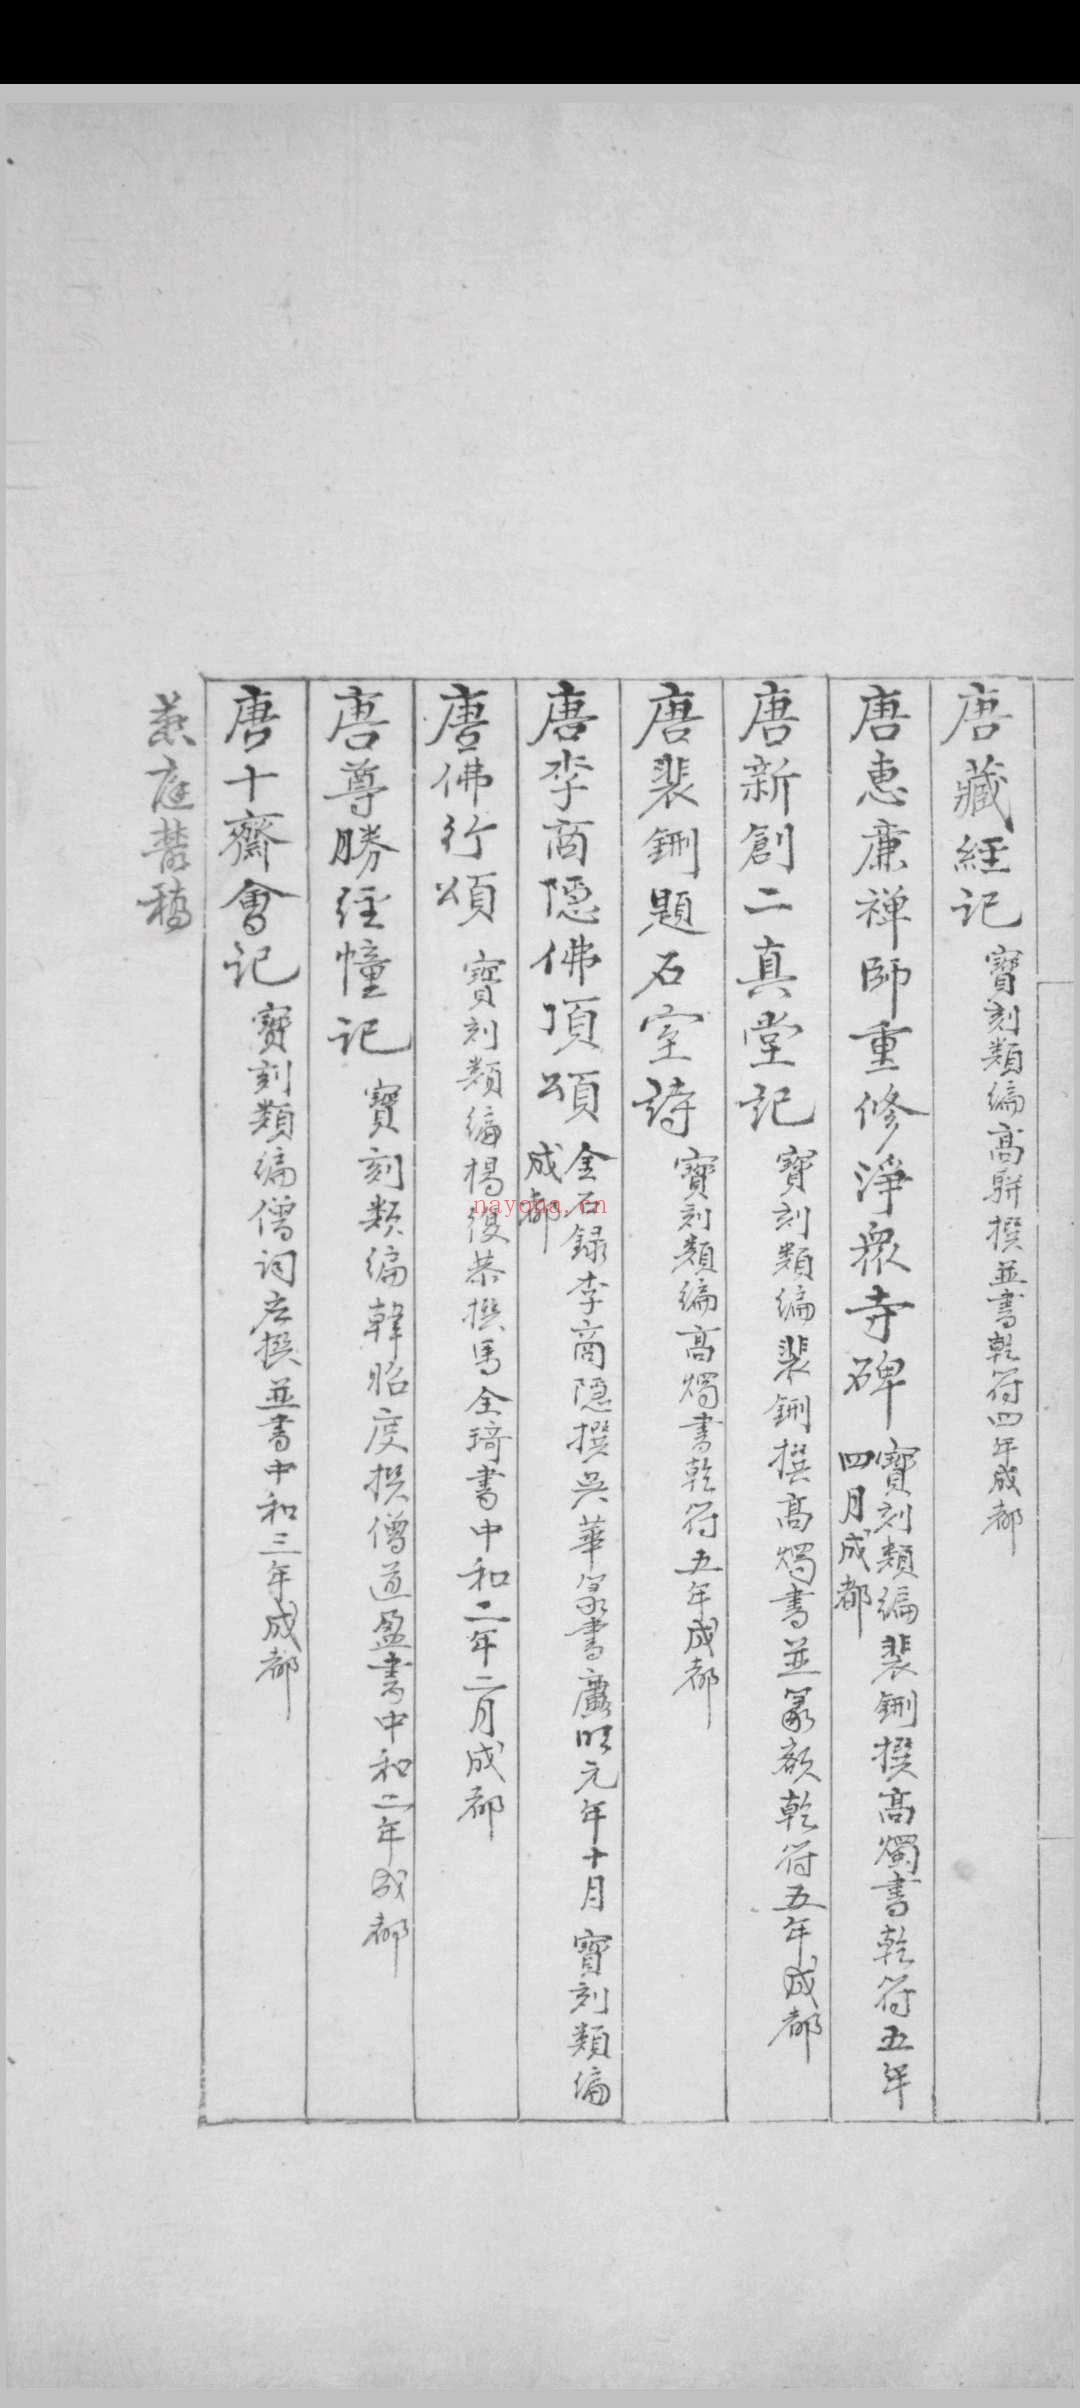 唐藏經記 寶刻類編高駢撰並書乾符四年成都
唐惠廉禅師重修淨衆寺碑 寶刻類編裴鉶撰高燭書乾符五年
四月成都
唐新創二真堂記 寶刻類编裴鉶撰高燭書並篆额乾符五年成都
唐裴鉶題石室詩 寶刻類編高燭書乾符五年成都
唐李商隠佛頂頌 金石録李商隠撰吳華篆書廣明元年十月 寶刻類编
成都
唐佛行頌 寶刻類编楊復恭撰馬全琦書中和二年二月成都
唐尊勝経幢記 寶刻類编韓昭度撰僧道盈書中和二年成都
唐十齋會記 寶刻類编僧词立撰並書中和三年成都
燕庭叢稿
nayona.cn